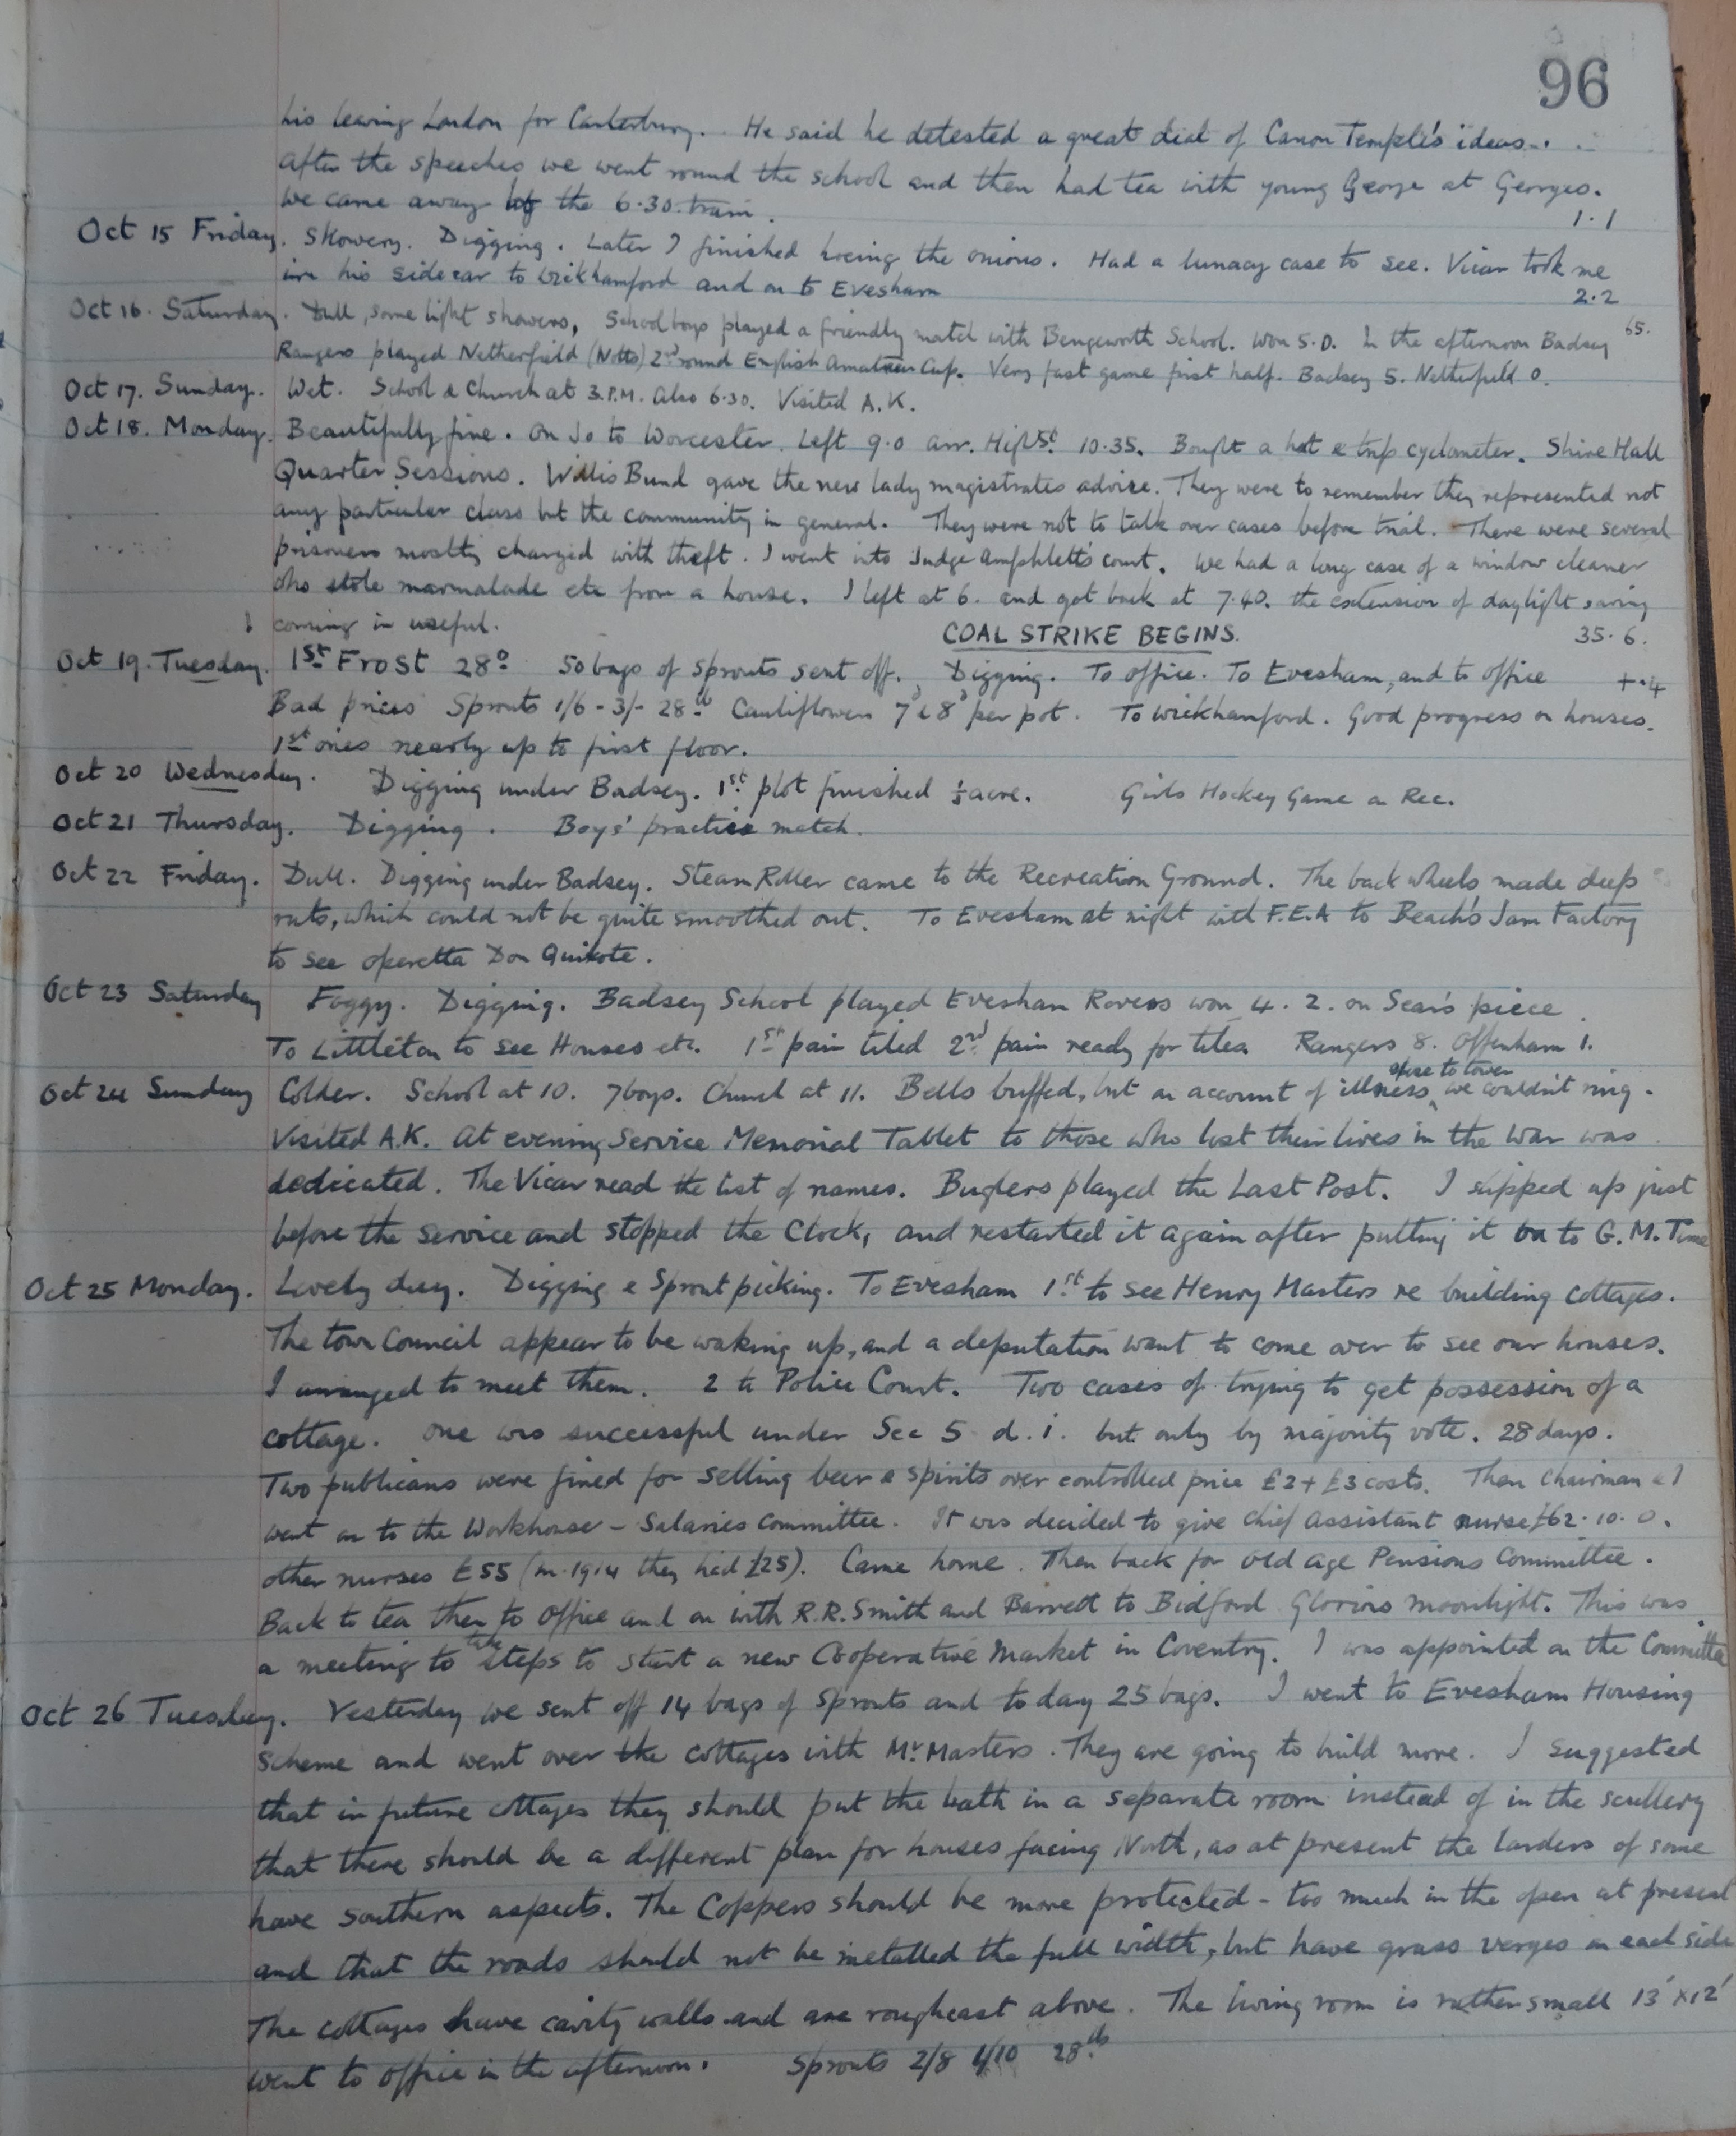 96
his leaving London for Canterbury. He said he detested a great deal of Canon Temple's ideas.
After the speeches we went round the school and then had tea with young George at Georges.
We came away by the 6.30 train.
1.1
Oct 15 Friday. Showery. Digging. Later I finished hoeing the onions. Had a lunacy case to see. Vicar took me
in his sidecar to Wickhamford and on to Evesham
2.2
Oct 16. Saturday. Dull, some light showers, Schoolboys played a friendly match with Bengeworth School. Won 5.0. In the afternoon Badsey 65.
Rangers played Netherfield (Notts) 2nd round English Amateur Cup. Very fast game first half. Badsey 5. Netherfield 0.
Oct 17. Sunday. Wet. School & Church at 3.P.M. Also 6.30. Visited A.K.
Oct 18. Monday. Beautifully fine. On Jo to Worcester. Left 9.0 arr. High St. 10.35. Bought a hat & trip cyclometer. Shire Hall
Quarter Sessions. Willis Bund gave the new lady magistrates advice. They were to remember they represented not
any particular class but the community in general. They were not to talk over cases before trial. There were several
prisoners mostly charged with theft. I went into Judge Amphlett's court. We had a long case of a window cleaner
who stole marmalade etc from a house. I left at 6. and got back at 7.40. the extension of daylight saving
coming in useful.
COAL STRIKE BEGINS. 35.6.
Oct 19. Tuesday. 1st Frost 28° 50 bags of sprouts sent off. Digging. To office. To Evesham, and to office +.4
Bad prices Sprouts 1/6 - 3/- 28lb Cauliflowers 7d & 8d per pot. To Wickhamford. Good progress on houses.
1st ones nearly up to first floor.
Oct 20 Wednesday. Digging under Badsey. 1st plot finished acre. Girls Hockey Game on Rec.
Oct 21 Thursday. Digging. Boys' practice match.
Oct 22 Friday. Dull. Digging under Badsey. Steam Roller came to the Recreation Ground. The back wheels made deep
ruts, which could not be quite smoothed out. To Evesham at night with F.E.A to Beach's Jam Factory
to see operetta Don Quixote.
Oct 23 Saturday Foggy. Digging. Badsey School played Evesham Rovers won 4.2. on Sears piece.
To Littleton to see Houses etc. 1st pair tiled 2nd pair ready for tiles. Rangers 8. Offenham 1.
Oct 24 Sunday Colder. School at 10. 7 boys. Church at 11. Bells buffed, but on account of illness close to tower we couldn't ring.
Visited A.K. At evening Service Memorial Tablet to those who lost their lives in the War was
dedicated. The Vicar read the list of names. Buglers played the Last Post. I slipped up just
before the service and stopped the Clock, and restarted it again after putting it on to G.M. Time
Oct 25 Monday. Lovely day. Digging & Sprout picking. To Evesham 1st to see Henry Masters re building cottages.
The town Council appear to be waking up, and a deputation want to come over to see our houses.
I arranged to meet them. 2 to Police Court. Two cases of trying to get possession of a
cottage. One was successful under Sec 5 d.i. but only by majority vote. 28 days.
Two publicans were fined for selling beer & spirits over controlled price £2 + £3 costs. Then Chairman & I
went on to the Workhouse - Salaries Committee. It was decided to give Chief Assistant nurse £62.10.0.
other nurses £55 (in 1914 they had £25). Came home. Then back for Old Age Pensions Committee.
Back to tea then to Office and on with R.R. Smith and Barrett to Bidford Glorious moonlight. This was
a meeting to take steps to start a new Cooperative Market in Coventry. I was appointed on the Committee
Oct 26 Tuesday. Yesterday we sent off 14 bags of Sprouts and to day 25 bags. I went to Evesham Housing
Scheme and went over the cottages with Mr Masters. They are going to build more. I suggested
that in future cottages they should put the bath in a separate room instead of in the scullery
that there should be a different plan for houses facing North, as at present the larders of some
have southern aspects. The Coppers should be more protected - too much in the open at present
and that the roads should not be metalled the full width, but have grass verges on each side
The cottages have cavity walls and are roughcast above. The living room is rather small 13' x 12'
went to office in the afternoon. Sprouts 2/8 28lb